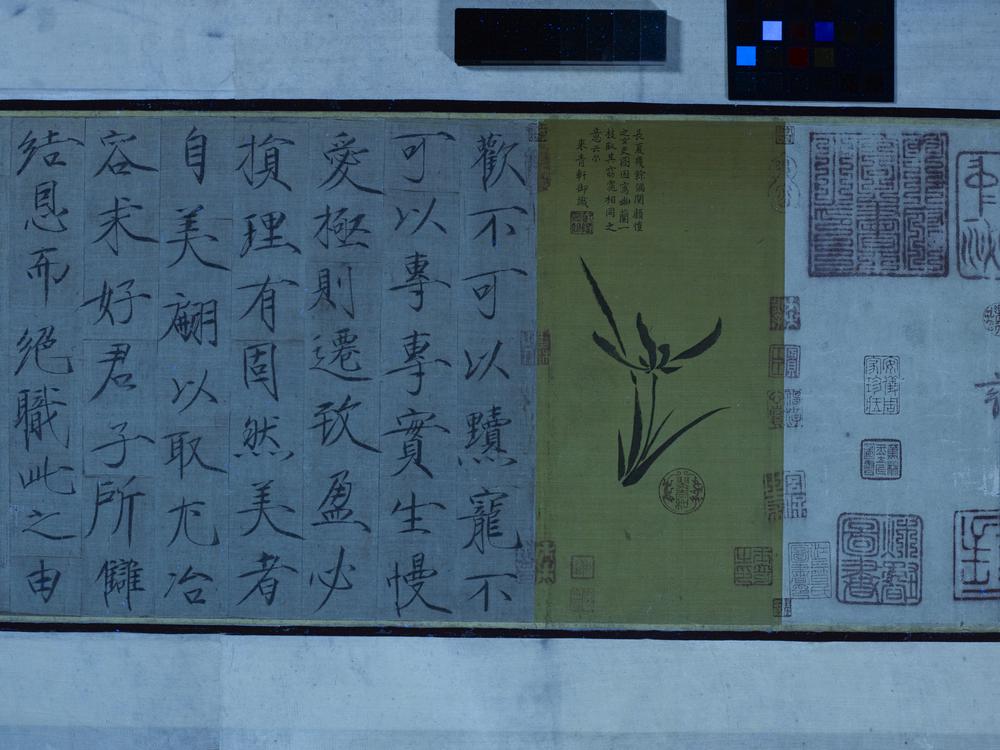 安儀周
家珍藏
長夏幾餘偶閱顧愷
之女史圖因寫幽蘭一
枝取其窈窕相同之
意云尒
來青軒御識
歡不可以黷寵不
可以專專實生慢
愛極則遷致盈必
損理有固然美者
自美翩以取尤冶
容求好君子所讎
結恩而絕職此之由